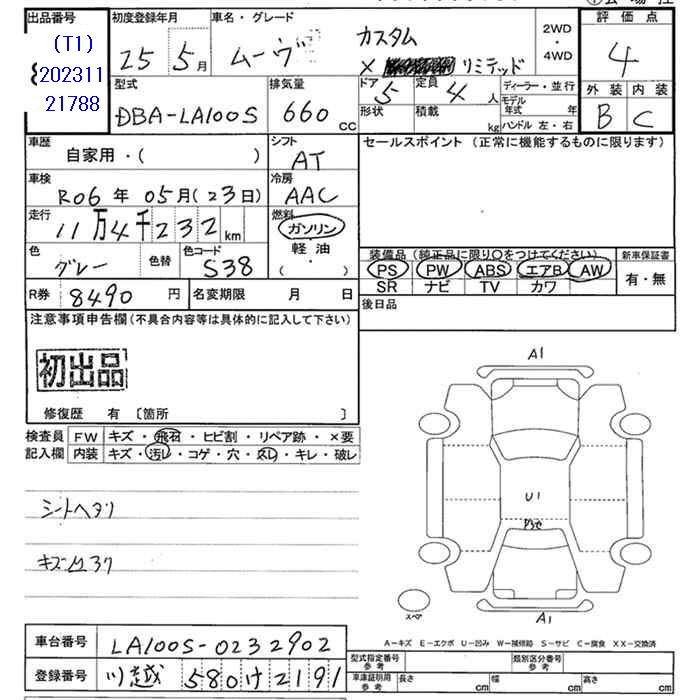 出品番号
(T1)
202311
21788
初度登録年月
25 5月
車名・グレード
ムーヴ カスタム
X リミテッド
2WD
・
4WD
評価点
4
外装 内装
B C
型式
DBA-LA100S
排気量
660 cc
ドア
5
定員
4人
形状
積載
kg
ディーラー・並行
モデル年式 年
ハンドル 左・右
車歴
自家用・( )
シフト
AT
セールスポイント (正常に機能するものに限ります)
車検
R06年 05月(23日)
冷房
AAC
走行
11万4千232km
燃料
ガソリン
軽油
・
( )
色
グレー
色替
色コード
S38
装備品 (純正品に限り○をつけてください)
PS PW ABS エアB AW
SR ナビ TV カワ
新車保証書
有・無
R券 8490円
名変期限 月 日
後日品
注意事項申告欄(不具合内容等は具体的に記入して下さい)
初出品
修復歴 有 〔箇所 〕
検査員 FW キズ・飛石・ヒビ割・リペア跡・×要
記入欄 内装 キズ・汚レ・コゲ・穴・スレ・キレ・破レ
シートヘタリ
A1
U1
A1
スペア
A-キズ E-エクボ U-凹み W-補修跡 S-サビ C-腐食 XX-交換済
車台番号 LA100S-0232902
登録番号 川越 580け2191
型式指定番号 参考
類別区分番号 参考
車庫証明用 参考 長さ cm 幅 cm 高さ cm